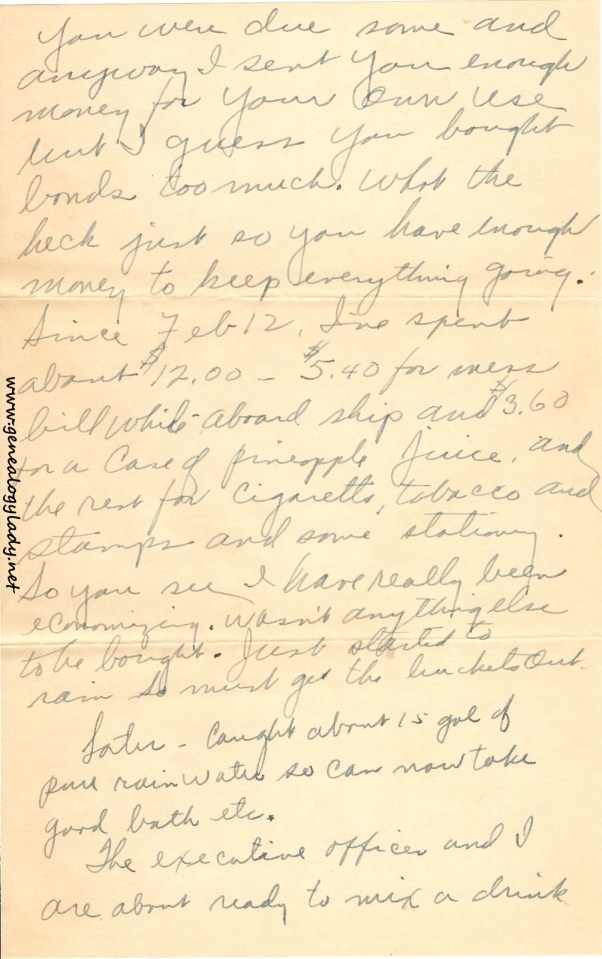 You were due some and
anyway I sent you enough
money for your own use
but I guess you bought
bonds too much. What the
heck just so you have enough
money to keep everything going.
Since Feb 12, I've spent
about $12.00 - $5.40 for mess
bill while aboard ship and $3.60
for a case of pineapple juice, and
the rest for cigaretts, tobacco and
stamps and some stationery.
So you see I have really been
economizing. Wasn't anything else
to be bought. Just started to
rain so must get the buckets out.
Later - Caught about 15 gal of
pure rain water so can now take
good bath etc.
The executive officer and I
are about ready to mix a drink
www.genealogylady.net